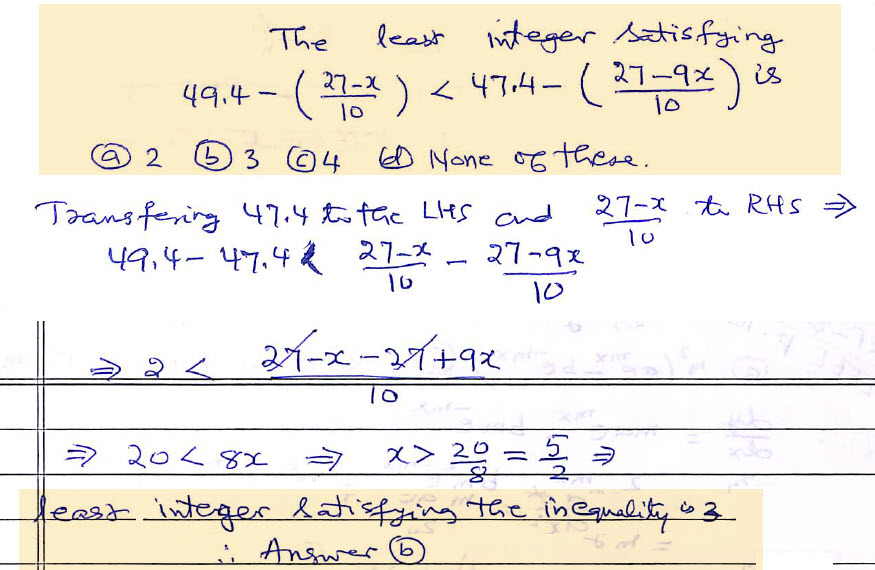 The least integer satisfying
49.4 - ( 27-x / 10 ) < 47.4 - ( 27-9x / 10 ) is
(a) 2 (b) 3 (c) 4 (d) None of these.
Transfering 47.4 to the LHS and 27-x / 10 to RHS ⇒
49.4 - 47.4 < 27-x / 10 - 27-9x / 10
⇒ 2 < 27-x-27+9x / 10
⇒ 20 < 8x ⇒ x > 20/8 = 5/2 ⇒
least integer satisfying the inequality is 3
∴ Answer (b)